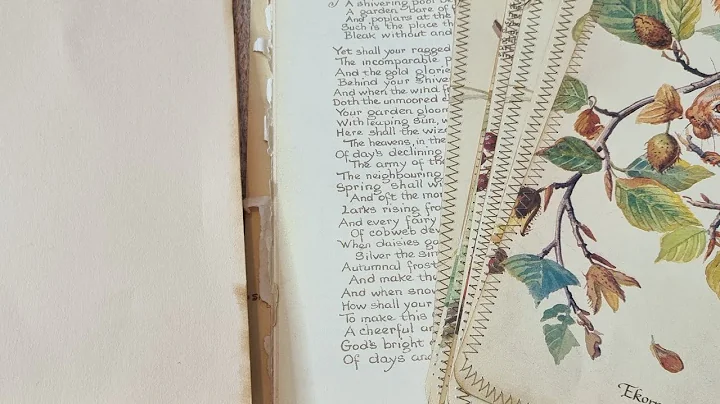 A shivering pool be
A garden bare of
And poplars at the
Such is the place th
Bleak without and
Yet shall your ragged
The incomparable p
And the gold glorie
Behind your shive
And when the wind fr
Doth the unmoored c
Your garden gloom
With leaping sun, w
Here shall the wiza
The heavens, in the
Of day's declining
The army of the
The neighbouring
Spring shall wi
And oft the mor
Larks rising fro
And every fairy
Of cobweb dew
When daisies go
Silver the sim
Autumnal frost
And make the
And when snow
How shall your
To make this
A cheerful an
God's bright
Of days and
Ekorr